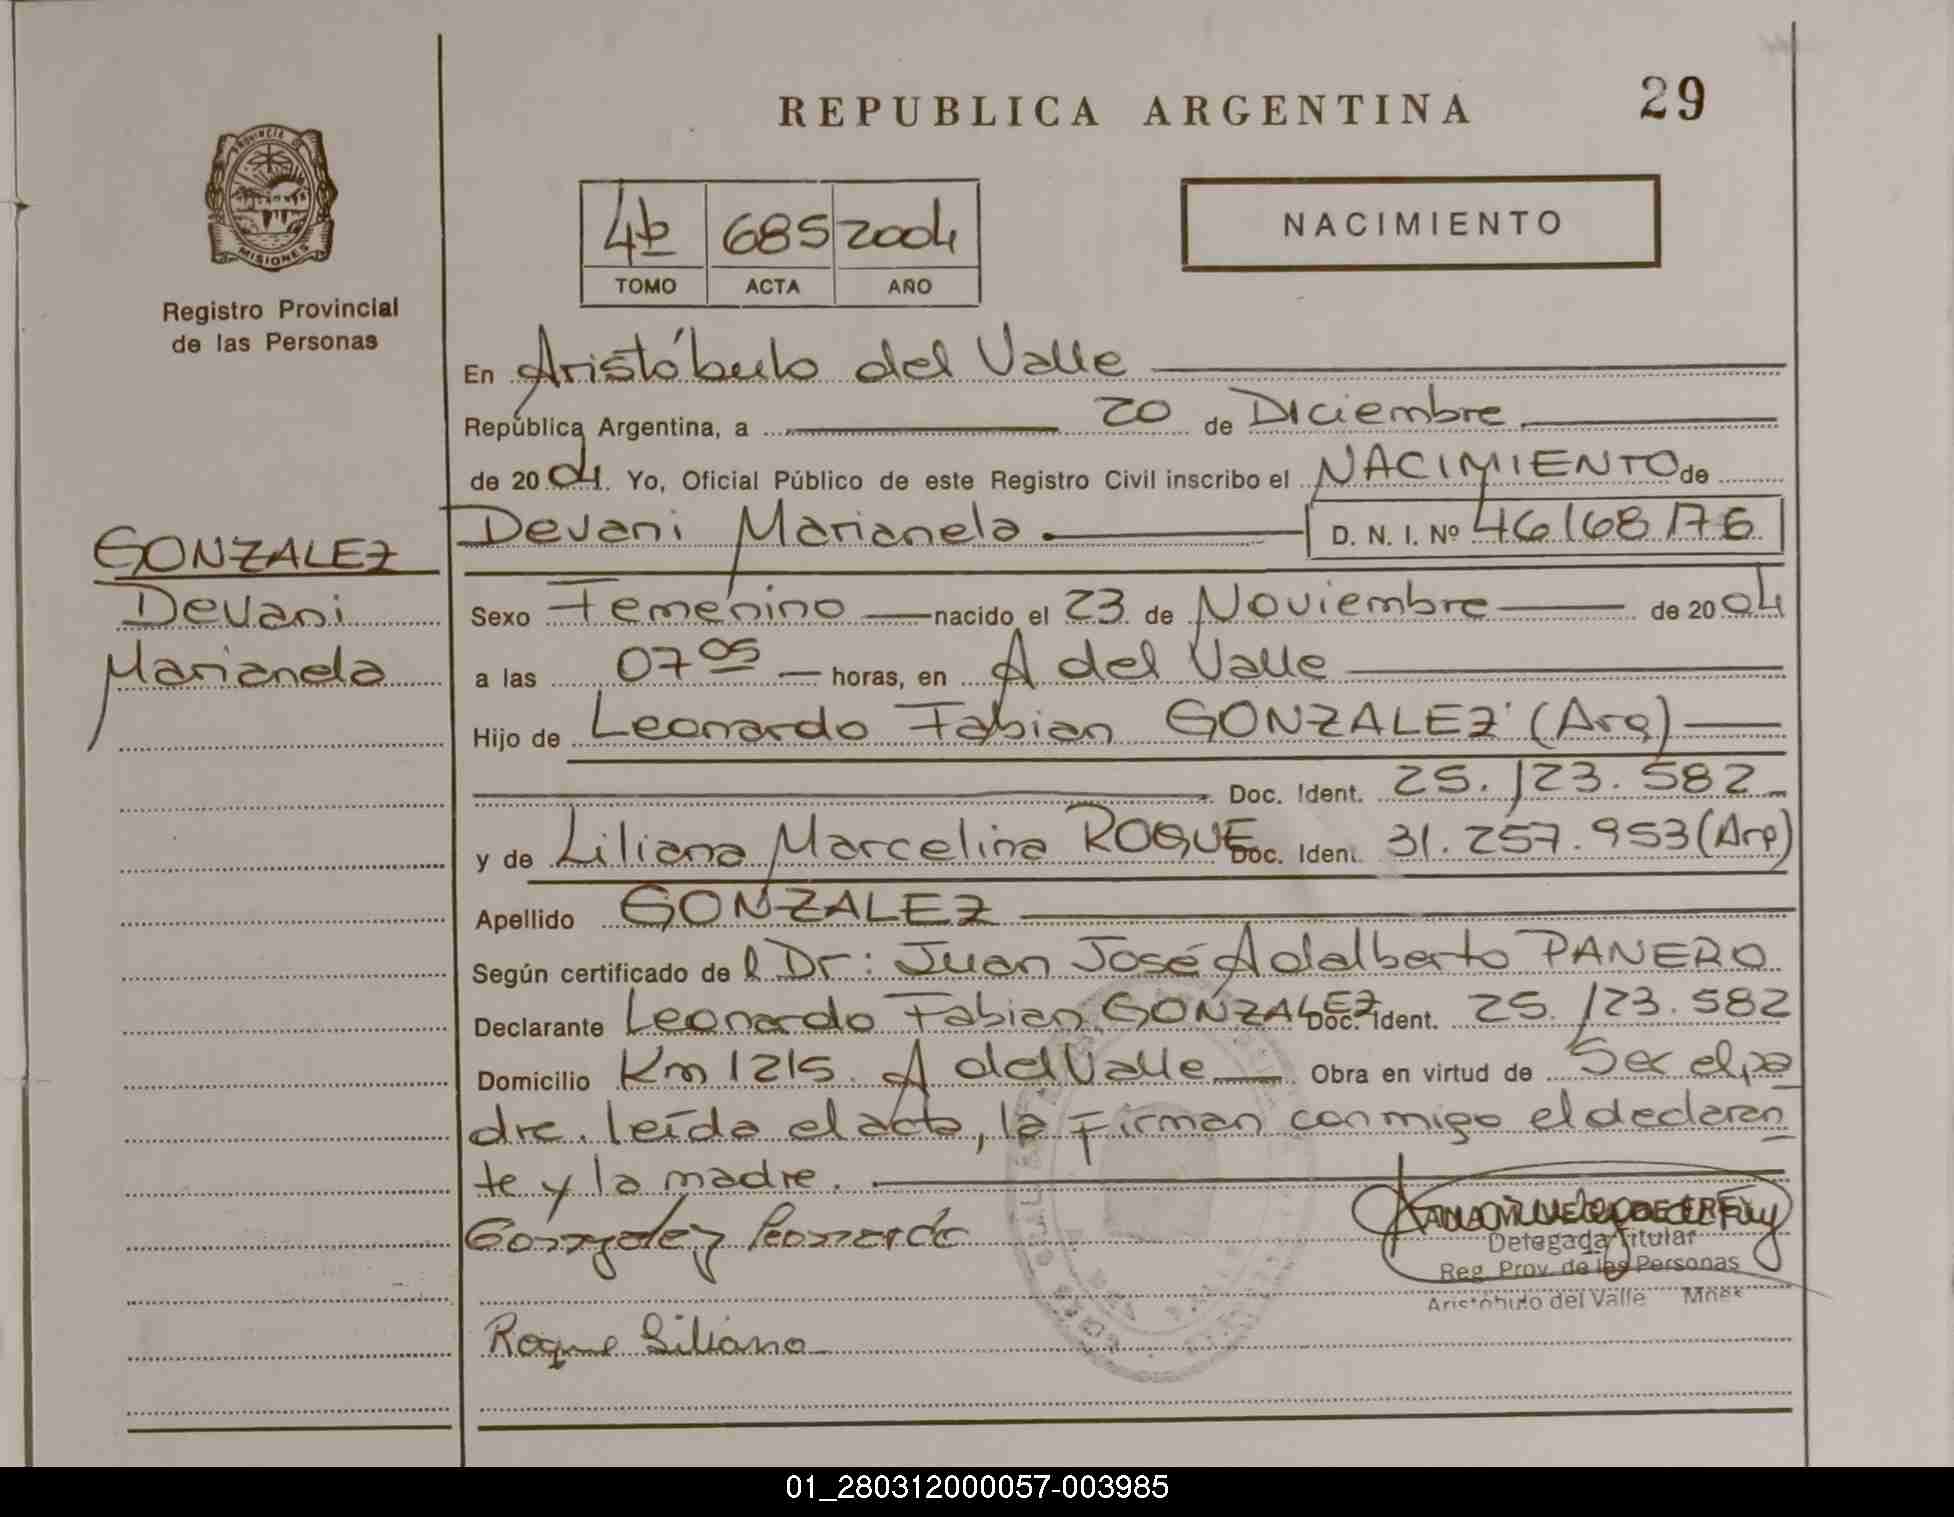 REPUBLICA ARGENTINA
29
PROVINCIA DE
MISIONES
Registro Provincial
de las Personas
4b 685 2004
TOMO ACTA AÑO
NACIMIENTO
En Aristóbulo del Valle
República Argentina, a 20 de Diciembre
de 2004. Yo, Oficial Público de este Registro Civil inscribo el NACIMIENTO de
Devani Marianela D. N. I. Nº 46168176
GONZALEZ
Devani
Marianela
Sexo Femenino nacido el 23 de Noviembre de 2004
a las 07 05 horas, en A del Valle
Hijo de Leonardo Fabian GONZALEZ (Arg)
Doc. Ident. 25.123.582
y de Liliana Marcelina ROQUE Doc. Ident. 31.257.953 (Arg)
Apellido GONZALEZ
Según certificado de l Dr: Juan José Adalberto PANERO
Declarante Leonardo Fabian GONZALEZ Doc. Ident. 25.123.582
Domicilio Km 1215. A del Valle Obra en virtud de Ser el pa
dre. leída el acta, la firman conmigo el declaran
te y la madre.
Gonzalez Leonardo
Delegada Titular
Reg. Prov. de las Personas
Aristóbulo del Valle Mnes
Roque Liliana
01_280312000057-003985